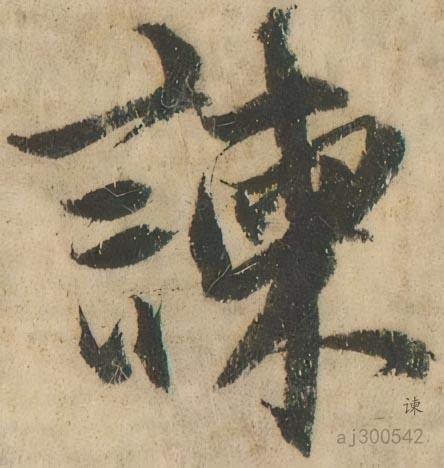 諫
谏
aj300542